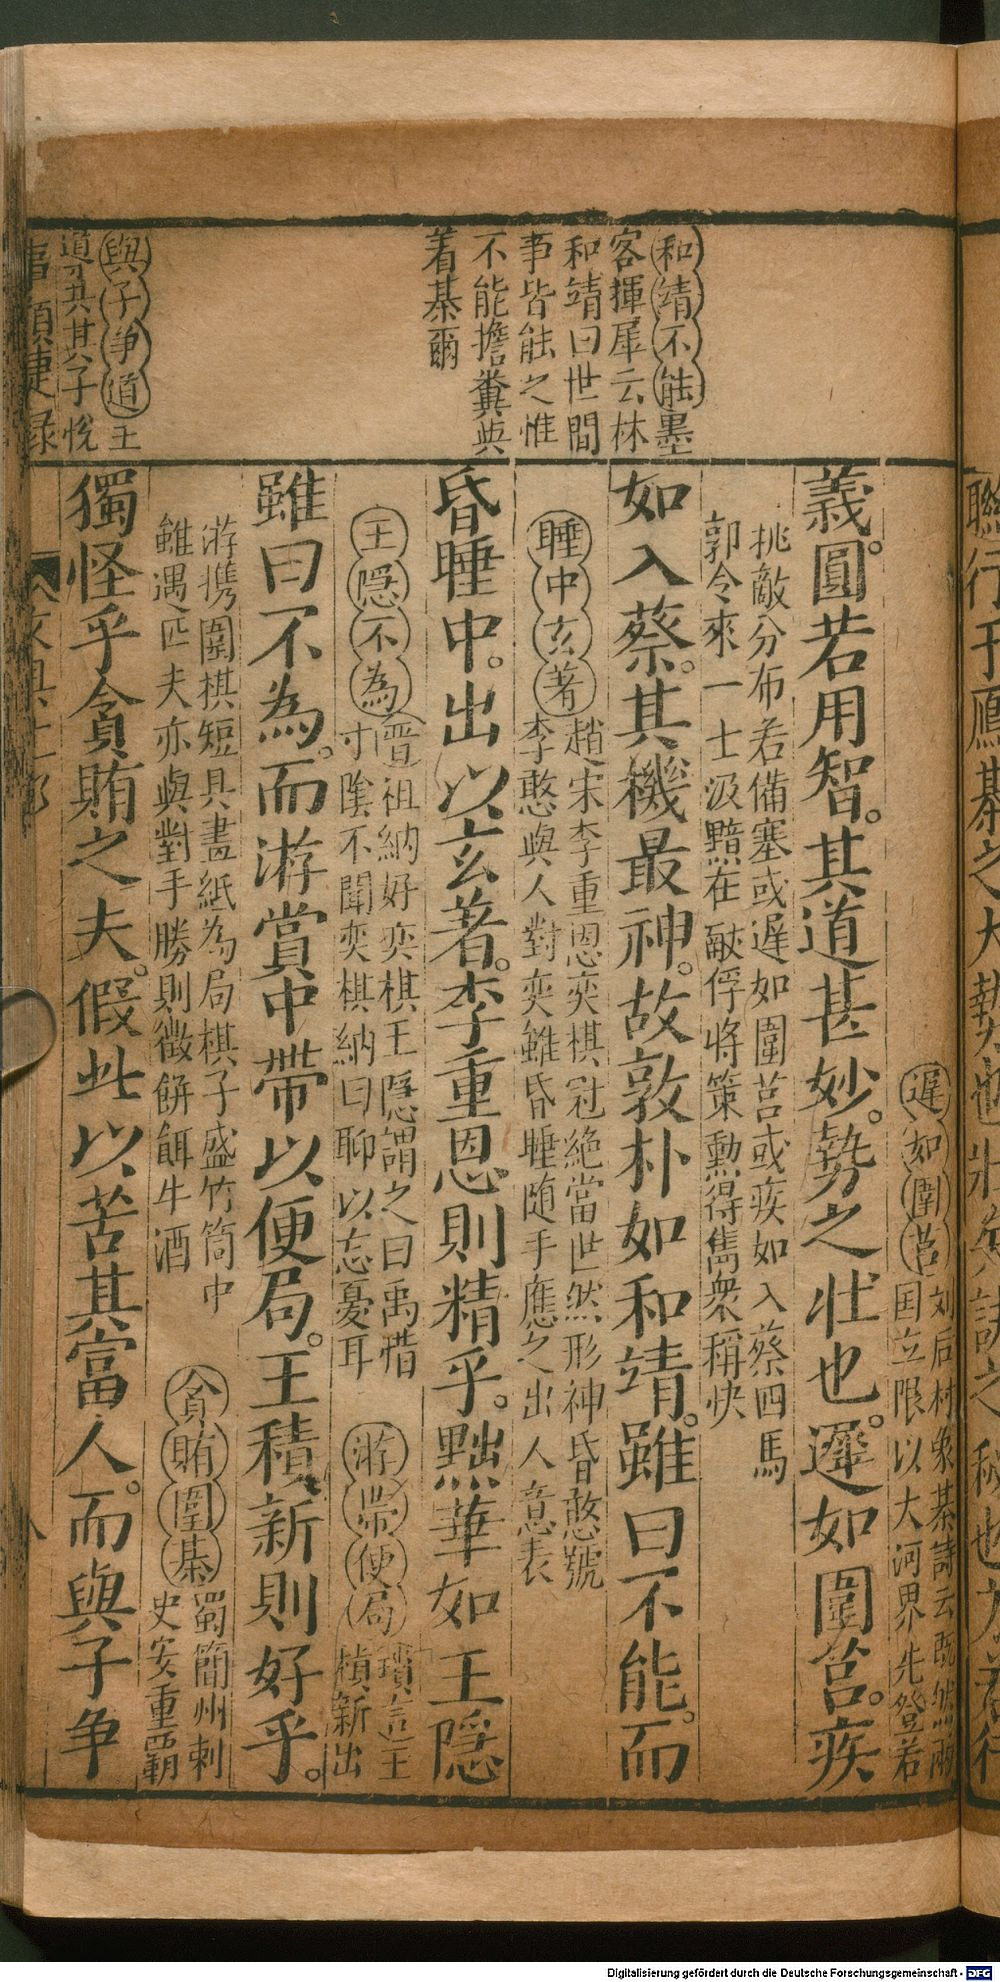 和靖不能墨
客揮犀云林
和靖曰世間
事皆能之惟
不能擔糞與
着棊爾
與子争道王
道
其子悅
義圓若用智其道甚妙勢之壯也遲如圍莒疾
遲如圍莒刘后村象棊詩云既然兩
国立限以大河界先登若
挑敵分布若備塞或遲如圍莒或疾如入蔡四馬
郭令來一士汲黯在献俘將策勲得雋衆稱快
如入蔡其機最神故敦朴如和靖雖曰不能而
睡中玄著趙宋李重恩奕棋冠絶當世然形神昏憨號
李憨與人對奕雖昏睡随手應之出人意表
昏睡中出以玄著李重恩則精乎黜華如王隱
王隱不為晋祖納好奕棋王隱謂之曰禹惜
寸隂不聞奕棋納曰聊以忘憂耳
游帶便局瑣言王
積新出
雖曰不為而游賞中帶以便局王積新則好乎
游携圍棋短具畫紙為局棋子盛竹筒中
雖遇匹夫亦與對手勝則徵餅餌牛酒
貪賄圍棊蜀簡州刺
史安重覇
獨怪乎貪賄之夫假此以苦其富人而與子争
Digitalisierung gefördert durch die Deutsche Forschungsgemeinschaft - DFG